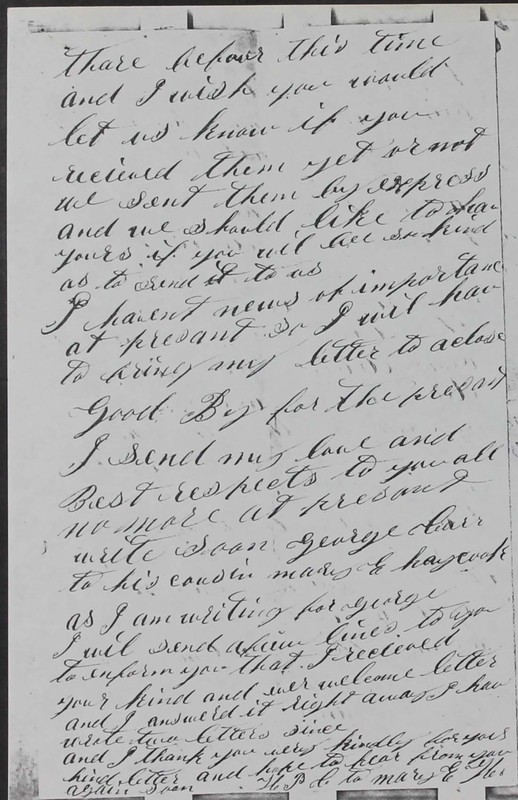 thare befour this time
and I wish you would
let us know if you
recieved them yet or not
we sent them by express
and we should like to hav
yours if you will bee so kind
as to send it to us
I havent news of importanc
at presant so I wil hav
to bring my letter to aclose
Good By for the presant
I send my love and
Best respects to you all
no more at presant
write soon George
to his cousin mary E haycook
as I am writing for George
I wil send afeiw lines to you
to enform you that I recieved
your kind and ever welcome letter
and I answered it right away I hav
wrote two letters since
and I thank you very kindly for your
kind letter and hope to hear from you
again soon to mary E